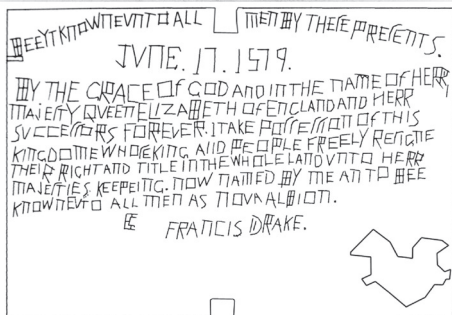 BEE YT KNOWNE VNTO ALL MEN BY THESE PRESENTS.
IVNE. 17. 1579.
BY THE GRACE OF GOD AND IN THE NAME OF HERR
MAIESTY QVEEN ELIZABETH OF ENGLAND AND HERR
SVCCESSORS FOREVER. I TAKE POSSESSION OF THIS
KINGDOME WHOSE KING AND PEOPLE FREELY RESIGNE
THEIR RIGHT AND TITLE IN THE WHOLE LAND VNTO HERR
MAIESTIES KEEPEING. NOW NAMED BY ME AN TO BEE
KNOWNE VTO ALL MEN AS NOVA ALBION.
FRANCIS DRAKE.